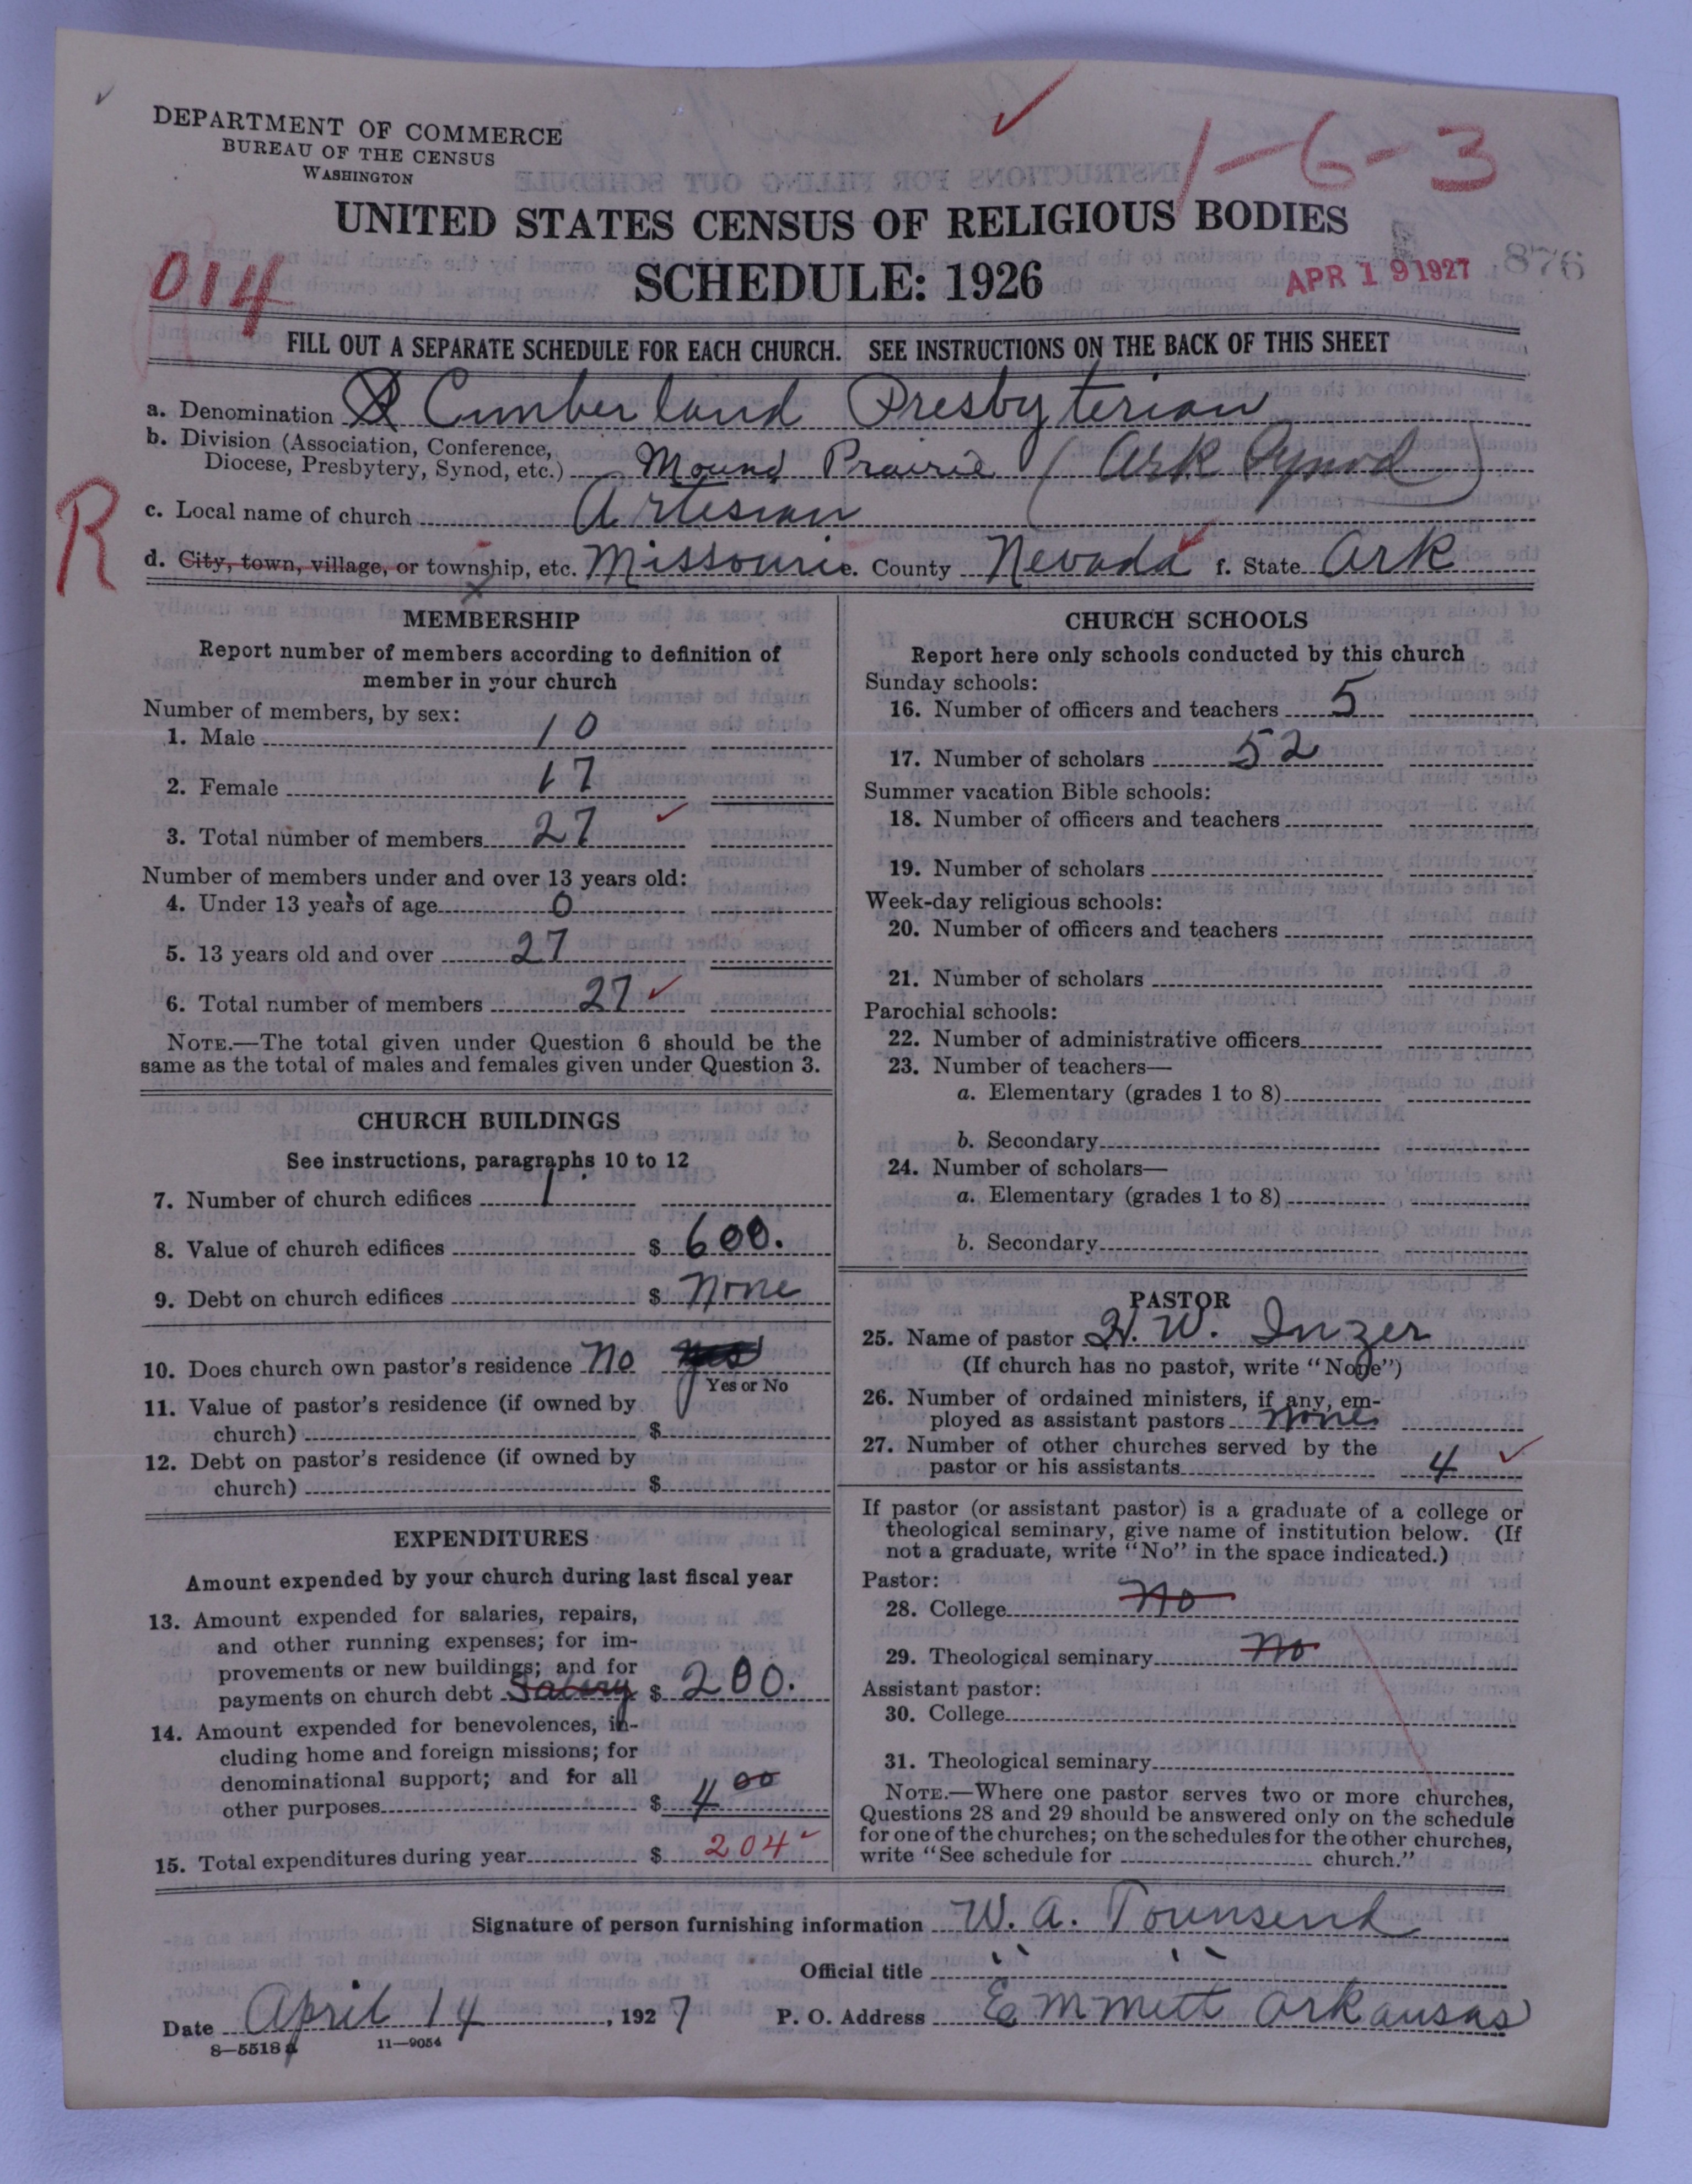 DEPARTMENT OF COMMERCE
BUREAU OF THE CENSUS
WASHINGTON
1-6-3
UNITED STATES CENSUS OF RELIGIOUS BODIES
SCHEDULE: 1926
014
APR 19 1927
876
FILL OUT A SEPARATE SCHEDULE FOR EACH CHURCH. SEE INSTRUCTIONS ON THE BACK OF THIS SHEET
a. Denomination Cumberland Presbyterian
b. Division (Association, Conference,
Diocese, Presbytery, Synod, etc.) Mound Prairie (Ark Synod)
R
c. Local name of church Artesian
d. City, town, village, or township, etc. Missouri e. County Nevada f. State Ark
MEMBERSHIP
Report number of members according to definition of
member in your church
Number of members, by sex:
1. Male 10
2. Female 17
3. Total number of members 27
Number of members under and over 13 years old:
4. Under 13 years of age 0
5. 13 years old and over 27
6. Total number of members 27
NOTE.—The total given under Question 6 should be the
same as the total of males and females given under Question 3.
CHURCH BUILDINGS
See instructions, paragraphs 10 to 12
7. Number of church edifices 1
8. Value of church edifices $ 600.
9. Debt on church edifices $ None
10. Does church own pastor's residence No yes
Yes or No
11. Value of pastor's residence (if owned by
church) $
12. Debt on pastor's residence (if owned by
church) $
EXPENDITURES
Amount expended by your church during last fiscal year
13. Amount expended for salaries, repairs,
and other running expenses; for im-
provements or new buildings; and for
payments on church debt Salery $ 200.
14. Amount expended for benevolences, in-
cluding home and foreign missions; for
denominational support; and for all
other purposes $ 4 00
15. Total expenditures during year $ 204
CHURCH SCHOOLS
Report here only schools conducted by this church
Sunday schools:
16. Number of officers and teachers 5
17. Number of scholars 52
Summer vacation Bible schools:
18. Number of officers and teachers
19. Number of scholars
Week-day religious schools:
20. Number of officers and teachers
21. Number of scholars
Parochial schools:
22. Number of administrative officers
23. Number of teachers—
a. Elementary (grades 1 to 8)
b. Secondary
24. Number of scholars—
a. Elementary (grades 1 to 8)
b. Secondary
PASTOR
25. Name of pastor H. W. Inzer
(If church has no pastor, write "None")
26. Number of ordained ministers, if any, em-
ployed as assistant pastors none
27. Number of other churches served by the
pastor or his assistants 4
If pastor (or assistant pastor) is a graduate of a college or
theological seminary, give name of institution below. (If
not a graduate, write "No" in the space indicated.)
Pastor:
28. College No
29. Theological seminary No
Assistant pastor:
30. College
31. Theological seminary
NOTE.—Where one pastor serves two or more churches,
Questions 28 and 29 should be answered only on the schedule
for one of the churches; on the schedules for the other churches,
write "See schedule for church."
Signature of person furnishing information W. A. Townsend
Official title " "
Date April 14, 1927 P. O. Address Emmett Arkansas
8—5518a 11—9054